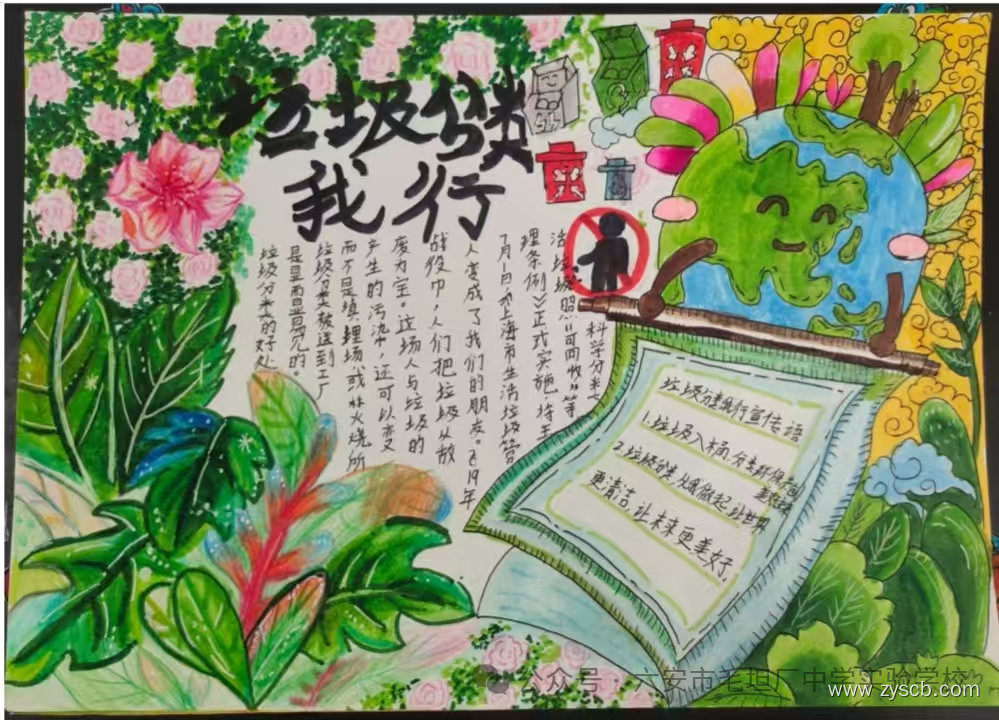 垃圾分类
我行
垃圾分类的好处
是显而显见的。
垃圾分类被送到工厂
而不是填埋场或林火烧所
产生的污染,还可以变
废为宝。这场人与垃圾的
战役巾,人们把垃圾从敌
人变成了我们的朋友。2019年
7月1日《上海市生活垃圾管
理条例》正式实施,将生
活垃圾照"可回收"等
科学分类
垃圾分类我行宣传语
1.垃圾入桶,分类环保
2.垃圾分类,做起,让世界
更清洁,让未来更美好.
公众号·六安市毛坦厂中学实验学校
www.zyscb.com